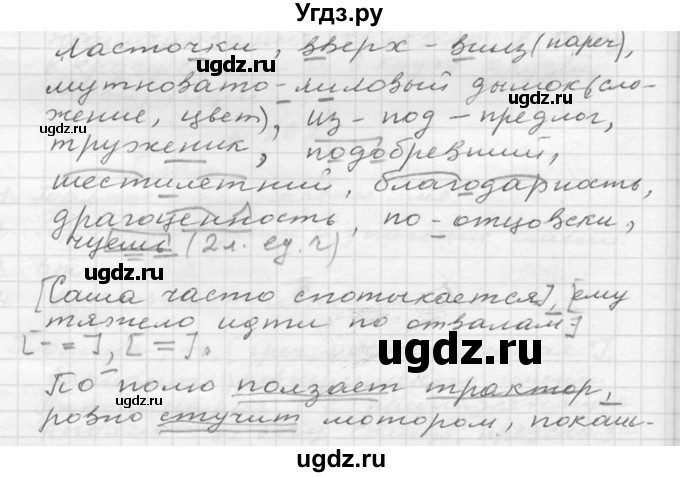 Угдз.ру
ласточки, вверх-вниз (нареч),
мутновато-лиловый дымок (сло-
жение, цвет), из-под - предлог,
труженик, подобревший,
шестилетний, благодарность,
драгоценность, по-отцовски,
чуешь (2л. ед. ч)
[Саша часто спотыкается], [ему
тяжело идти по отвалам]
[- =], [=].
По полю ползает трактор,
ровно стучит мотором, покаш-
ugdz.ru
ugdz.ru
ugdz.ru
ugdz.ru
ugdz.ru
ugdz.ru
ugdz.ru
ugdz.ru